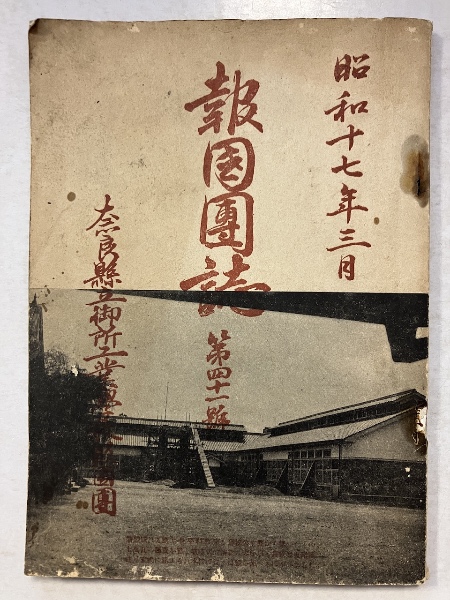 昭和十七年三月
報国團誌
第四十一號
奈良縣立御所工業學校報國團